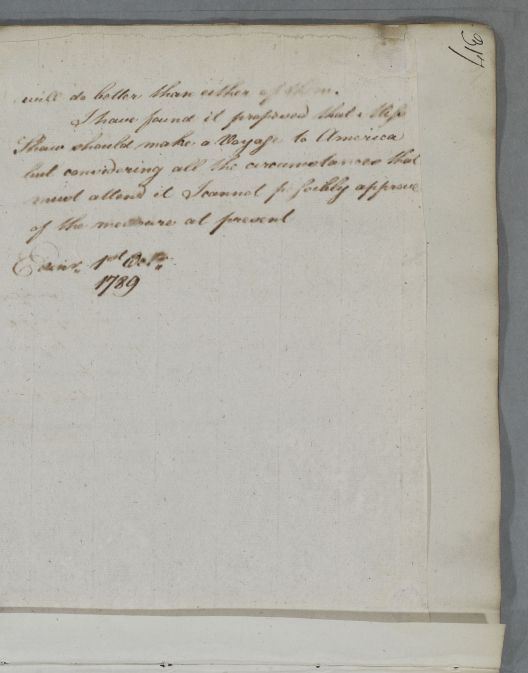 will do better than either of them.
I have found it proposed that Miss
Shaw should make a Voyage to America
but considering all the circumstances that
must attend it I cannot possibly approve
of the measure at present
Edinr. 1st Octr.
1789